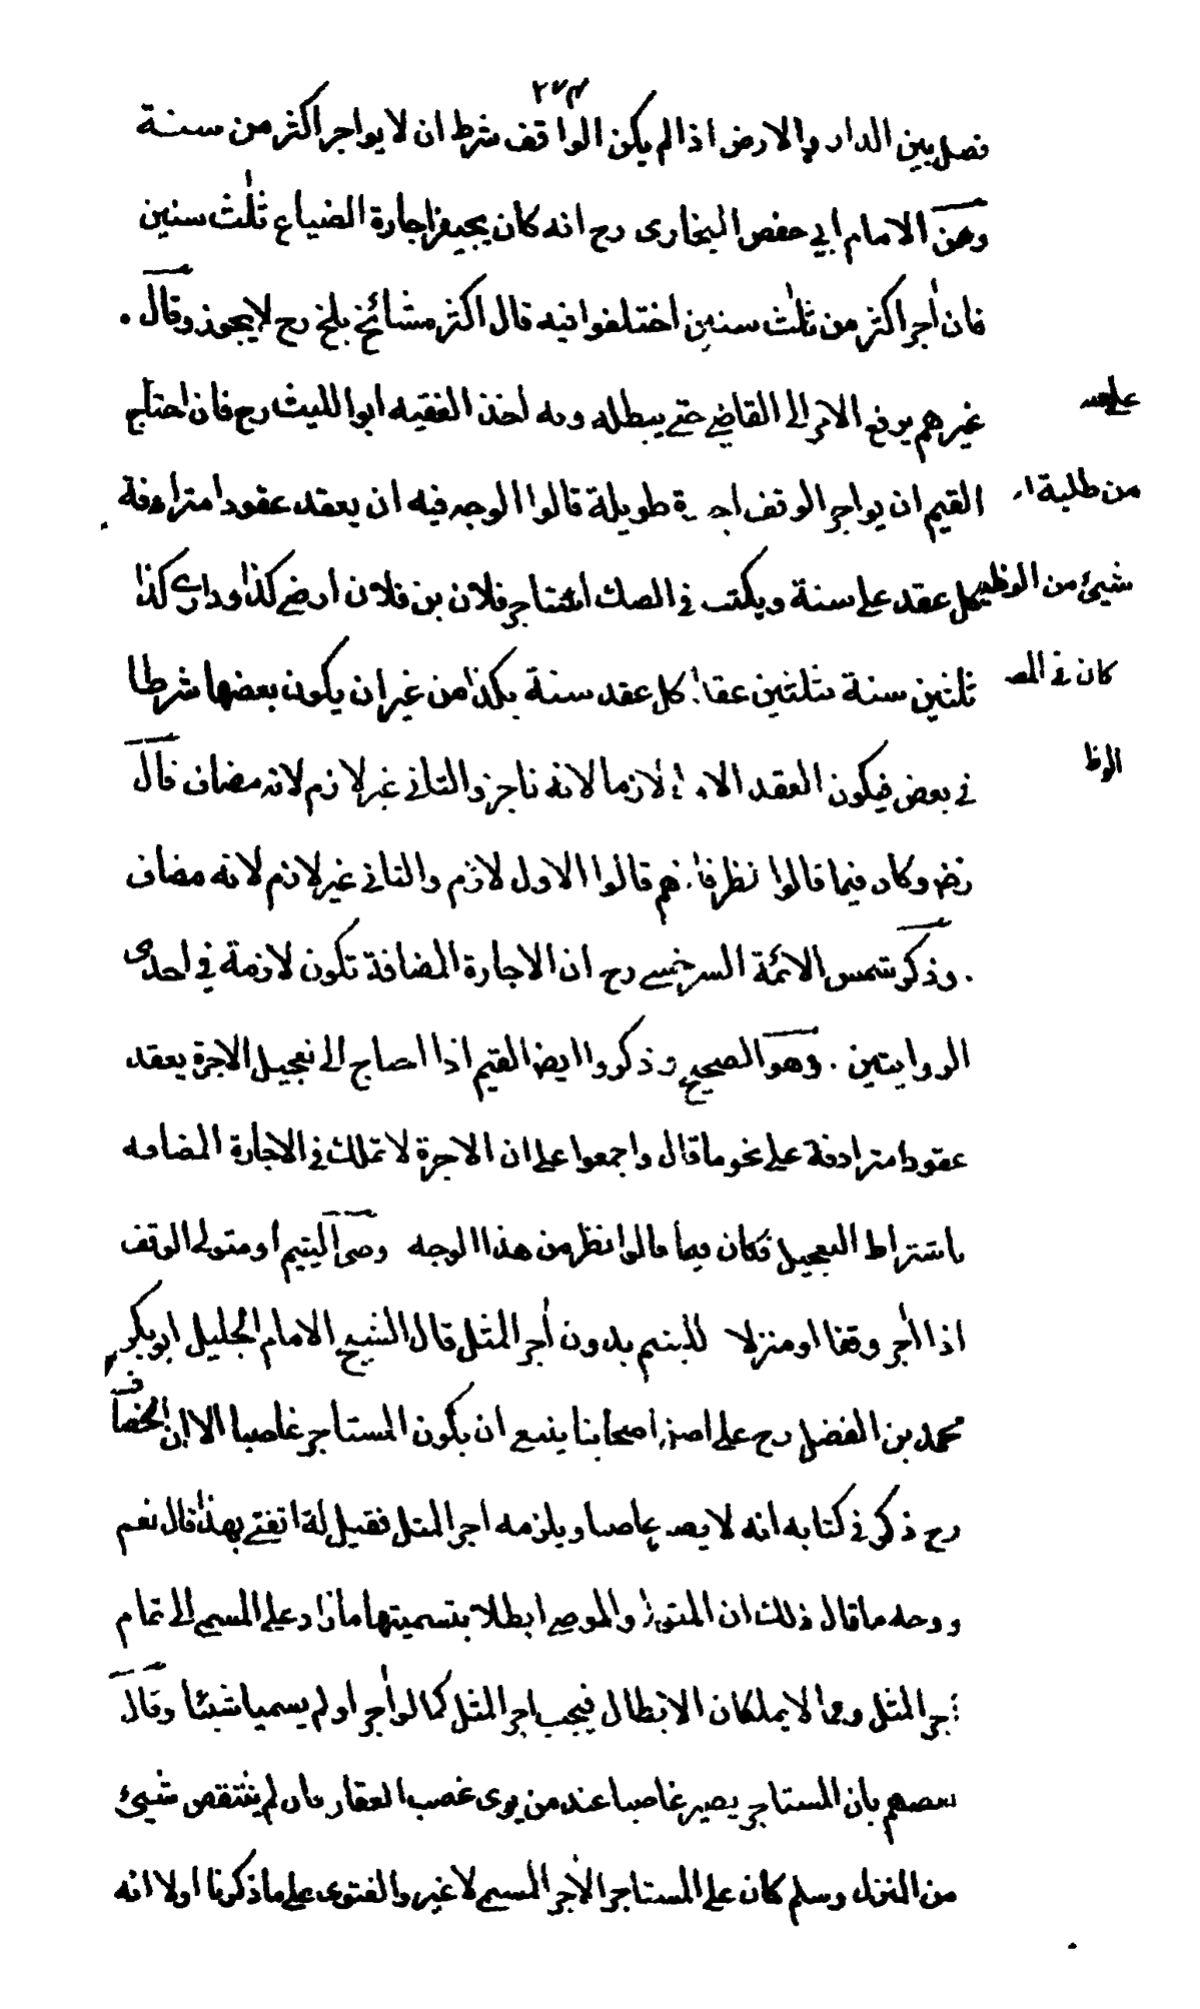 ٢٧٣
فصل بين الدار والارض اذا لم يكن الواقف شرط ان لا يواجر اكثر من سنة
وعن الامام ابي حفص البخارى رح انه كان يجيز اجارة الضياع ثلث سنين
فان اجر اكثر من ثلث سنين اختلفوا فيه قال اكثر مشائخ بلخ رح لا يجوز وقال
غيرهم يرفع الامر الى القاضي حتى يبطله وبه اخذ الفقيه ابو الليث رح فان احتاج
القيم ان يواجر الوقف اجارة طويلة قالوا الوجه فيه ان يعقد عقودا مترادفة
كل عقد على سنة ويكتب في الصك استاجر فلان بن فلان ارض كذا ودارى كذا
ثلثين سنة بثلثين عقدا كل عقد سنة بكذا من غير ان يكون بعضها شرطا
في بعض فيكون العقد الاول لازما لانه ناجز والثاني غير لازم لانه مضاف قال
رض وكان فيما قالوا نظر فانهم قالوا الاول لازم والثاني غير لازم لانه مضاف
وذكر شمس الائمة السرخسي رح ان الاجارة المضافة تكون لازمة في احدى
الروايتين . وهو الصحيح وذكروا ايضا القيم اذا احتاج الى تعجيل الاجرة يعقد
عقودا مترادفة على نحو ما قال واجمعوا على ان الاجرة لا تملك في الاجارة المضافة
باشتراط التعجيل فكان فيما قالوا نظر من هذا الوجه وصى اليتيم او متولى الوقف
اذا اجر وقفا او منزلا لليتيم بدون اجر المثل قال الشيخ الامام الجليل ابو بكر
محمد بن الفضل رح على اصل اصحابنا ينبغي ان يكون المستاجر غاصبا الا ان الخصاف
رح ذكر في كتابه انه لا يصير غاصبا ويلزمه اجر المثل فقيل له اتفتى بهذا قال نعم
ووجه ما قال ذلك ان المتولى والوصى ابطلا بتسميتهما ما زاد على المسمى الى تمام
اجر المثل وهما لا يملكان الابطال فيجب اجر المثل كما لو اجر او لم يسميا شيئا وقال
بعضهم بان المستاجر يصير غاصبا عند من يرى غصب العقار فان لم ينتقص شيئ
من المنزل وسلم كان على المستاجر الاجر المسمى لا غير والفتوى على ما ذكرنا اولا انه
من طلبة
شيئ من الوظيفة
كان في